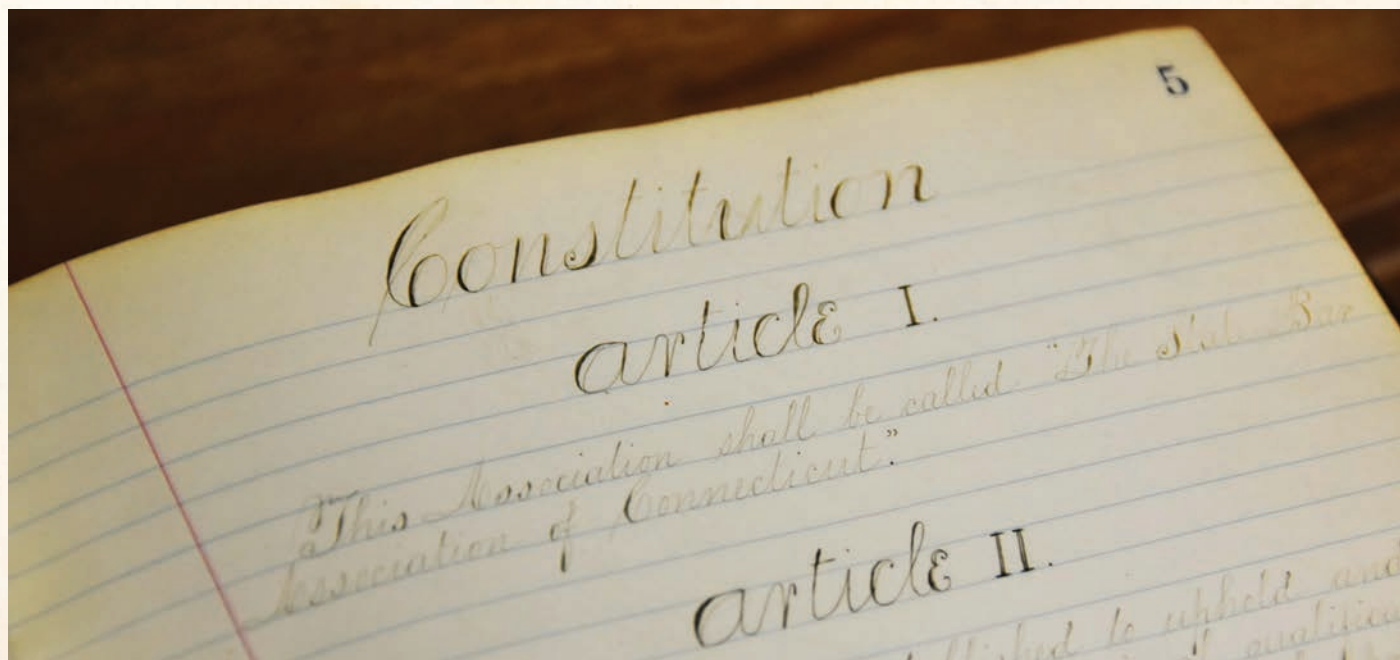 5
Constitution
article I.
This Association shall be called "The State Bar
Association of Connecticut."
article II.
to uphold and
of qualified